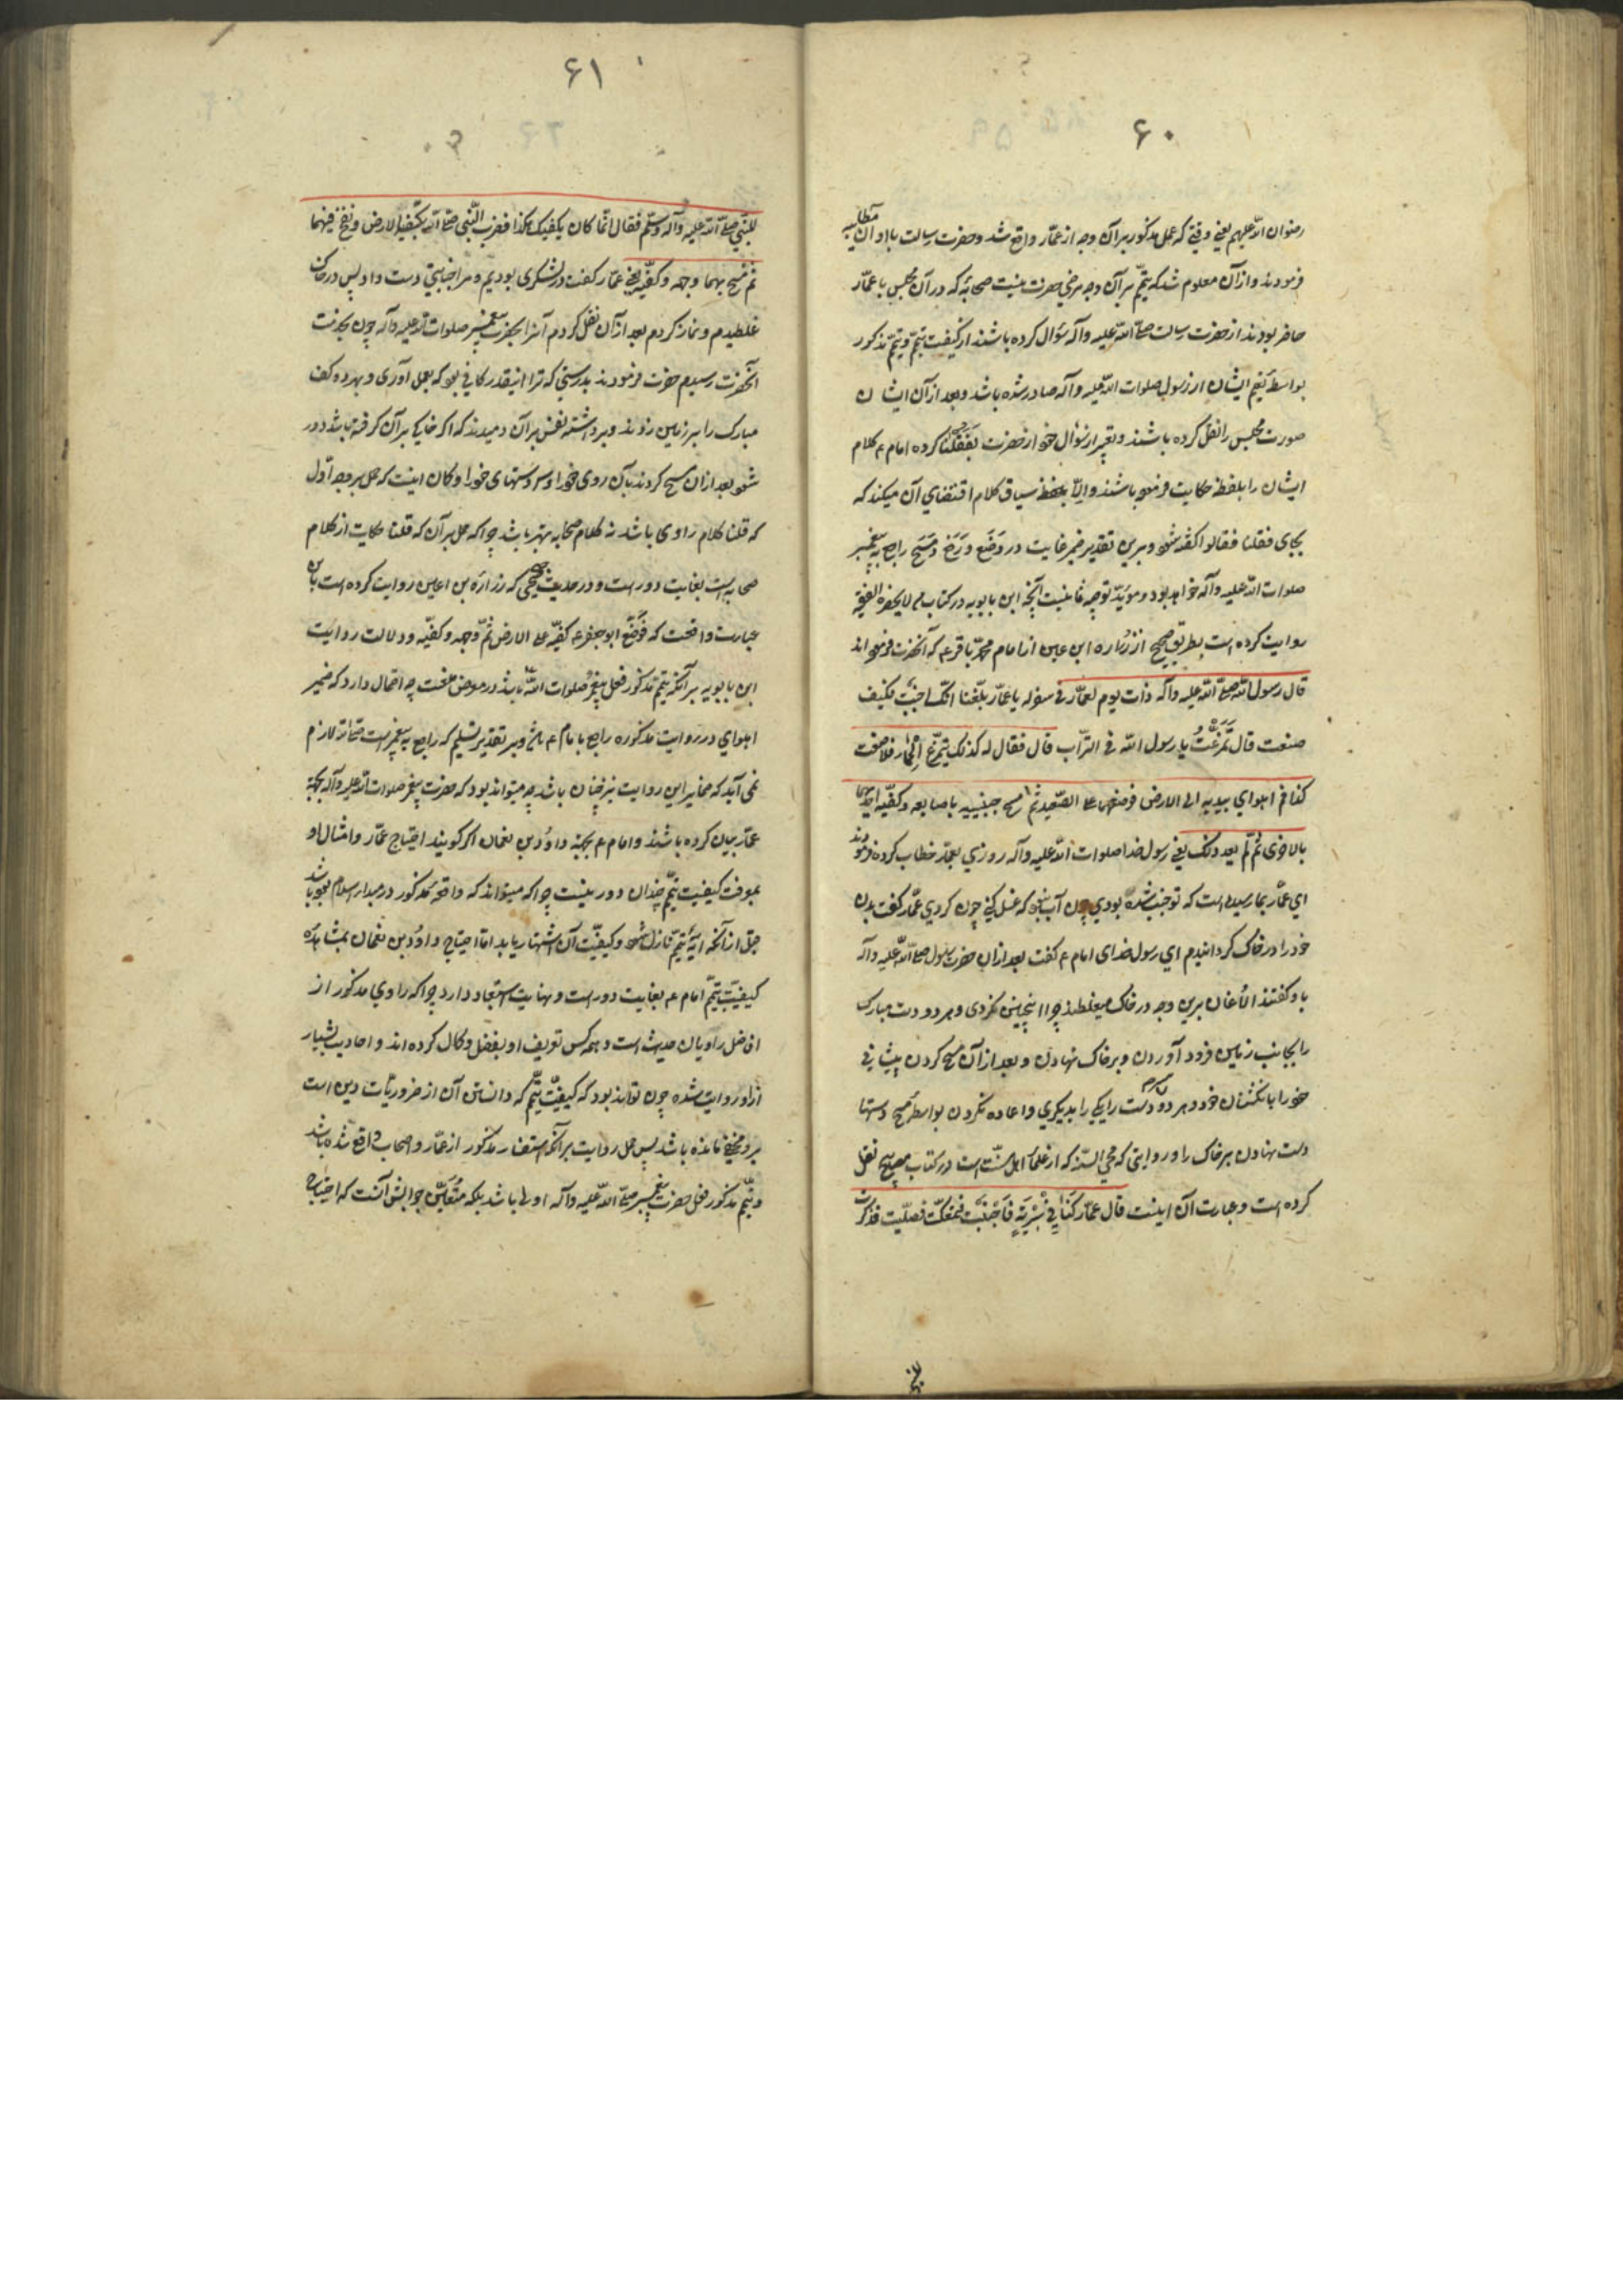 ۶۰
رضوان الله علیهم یعنی وقتی که عمل مذکور بر آن وجه از عمّار واقع شد و حضرت رسالت با او آن مطایبه
فرمودند و از آن معلوم شد که تیمّم بر آن وجه مرضی حضرت نیست صحابه که در آن مجلس با عمّار
حاضر بودند از حضرت رسالت صلّی الله علیه وآله سؤال کرده باشند از کیفیت تیمّم و تیمّم مذکور
بواسطه تعلیم ایشان از رسول صلوات الله علیه وآله صادر شده باشد و بعد از آن ایشان
صورت مجلس را نقل کرده باشند و تعبیر از سؤال خود از حضرت بفقلنا کرده امام ع کلام
ایشان را بلفظه حکایت فرموده باشند والّا سیاق کلام اقتضای آن میکند که
بجای فقلنا فقالوا گفته شود و برین تقدیر ضمیر غایت در وضع و رفع و مسح راجع به پیغمبر
صلوات الله علیه وآله خواهد بود و مؤید توجیه ثانیست آنچه ابن بابویه در کتاب من لا یحضره الفقیه
روایت کرده است بطریق صحیح از زراره ابن اعین از امام محمّد باقر ع که آنحضرت فرموده اند
قال رسول الله صلّی الله علیه وآله ذات یوم لعمّار فی سفر له یا عمّار بلّغنا انّک اجنبت فکیف
صنعت قال تمرّغت یا رسول الله فی التراب قال فقال له کذلک یتمرّغ الحمار افلا صنعت
کذا ثم اهوای بیدیه الی الارض فوضعهما علی الصّعید ثم مسح جبینیه باصابعه و کفّیه احدیهما
بالاخری ثم لم یعد ذلک یعنی رسول خدا صلوات الله علیه وآله روزی بعمّار خطاب کرده فرمودند
ای عمّار بما رسیده است که تو جنب شده بودی چون آب نبود که غسل کنی چون کردی عمّار گفت بدن
خود را در خاک گردانیدم ای رسول خدای امام ع گفت بعد از آن حضرت رسول صلّی الله علیه وآله
باو گفتند الاغان برین وجه در خاک میغلطند چرا اینچنین نکردی و هر دو دست مبارک
را بجانب زمین فرود آوردن و بر خاک نهادن و بعد از آن مسح کردن پیشانی
خود را بانگشتان خود و هر دو دست را یکی را بدیگری و اعاده نکردن بواسطه مسح دستها
دست نهادن بر خاک را و روایتی که محی السنّه که از علماء اهل سنّت است در کتاب مصابیح نقل
کرده است و عبارت آن اینست قال عمّار کنّا فی سریّة فاجنبت فتمعّکت فصلّیت فذکرت
۶۱
للنّبی صلّی الله علیه وآله وسلّم فقال انّما کان یکفیک هکذا فضرب النّبی صلّی الله بکفّیه الارض و نفخ فیهما
ثم مسح بهما وجهه و کفّیه یعنی عمّار گفت در لشکری بودیم و مرا جنابتی دست داد پس در خاک
غلطیدم و نماز کردم بعد از آن نقل کردم آنرا بحضرت پیغمبر صلوات الله علیه وآله چون بخدمت
آنحضرت رسیدم حضرت فرمودند بدرستی که ترا اینقدر کافی بود که بعمل آوری و بهر دو کف
مبارک را بر زمین زدند و برداشته نفس بر آن دمیدند که اگر خاکی بر آن گرفته باشد دور
شود بعد از آن مسح کردند بآن روی خود را و دستهای خود را و کان اینست که حمل بر وجه اوّل
که قلنا کلام راوی باشد نه کلام صحابه بهتر باشد چرا که حمل بر آن که قلنا حکایت از کلام
صحابه است بغایت دور است و در حدیث صحیحی که زراره بن اعین روایت کرده است باین
عبارت واقعست که فوضع ابو جعفر ع کفّیه علی الارض ثمّ وجهه و کفّیه و دلالت روایت
ابن بابویه بر آنکه تیمّم مذکور فعل پیغمبر صلوات الله باشد در معرض منعست چه احتمال دارد که ضمیر
اهوای در روایت مذکوره راجع بامام ع باشد و بر تقدیر تسلیم که راجع به پیغمبر است صلّی الله لازم
نمی آید که ضمایر این روایت نیز چنان باشد چه میتواند بود که حضرت پیغمبر صلوات الله علیه وآله بجهة
عمّار بیان کرده باشند و امام ع بجهة داوُد بن نعمان اگر گویند احتیاج عمّار و امثال او
بمعرفت کیفیت تیمّم چندان دور نیست چرا که میتواند که واقعه مذکور در مبداء اسلام بوده باشد
قبل از آنکه آیهٔ تیمّم نازل شود و کیفیّت آن اشتهار یابد امّا احتیاج داوُد بن نعمان بمشاهده
کیفیّت تیمّم امام ع بغایت دور است و نهایت استبعاد دارد چرا که راوی مذکور از
افاضل راویان حدیث است و همه کس تعریف او بفضل و کمال کرده اند و احادیث بسیار
ازو روایت شده چون تواند بود که کیفیّت تیمّم که دانستن آن از ضروریّات دین است
برو مخفی مانده باشد پس حمل روایت بر آنکه استفسار مذکور از عمّار و اصحاب واقع شده باشد
و تیمّم مذکور فعل حضرت پیغمبر صلّی الله علیه وآله اولی باشد بلکه متعیّن جوابش آنست که احتیاج